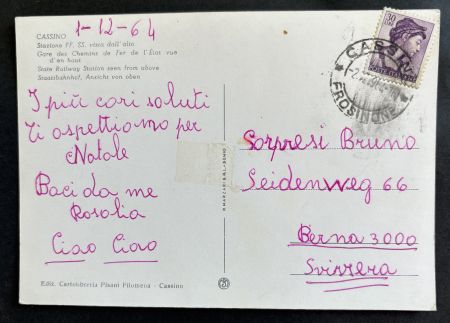 1-12-64
CASSINO
Stazione FF. SS. vista dall'alto
Gare des Chemins de Fer de l'État vue
d'en haut
State Railway Station seen from above
Staatsbahnhof, Ansicht von oben
I più cari saluti
Ti aspettiamo per
Natale
Baci da me
Rosalia
Ciao Ciao
Ediz. Cartolibreria Pisani Filomena - Cassino
30
CASSINO
FROSINONE
Sorpresi Bruno
Seidenweg 66
Berna 3000
Svizzera